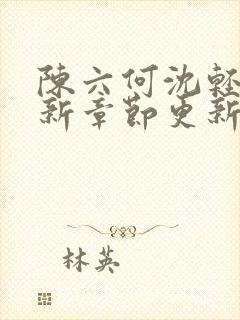 陳六何沈輕
新章節更新
林英